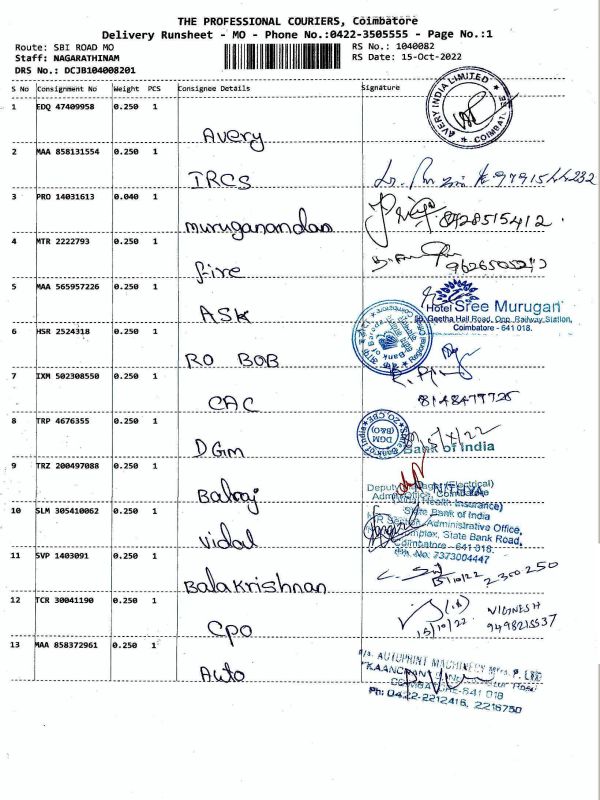 THE PROFESSIONAL COURIERS, Coimbatore
Delivery Runsheet - MO - Phone No.:0422-3505555 - Page No.:1
Route: SBI ROAD MO
RS No.: 1040082
Staff: NAGARATHINAM
RS Date: 15-Oct-2022
DRS No.: DCJB104008201
S No Consignment No Weight PCS Consignee Details Signature
1 EDQ 47409958 0.250 1 Avery
AVERY INDIA LIMITED
2 MAA 858131554 0.250 1 IRCS
3 PRO 14031613 0.040 1 Muruganandan
Priya 8428515412
4 MTR 2222793 0.250 1 fire
5 MAA 565957226 0.250 1 ASK
Hotel Sree Murugan
Geetha Hall Road, Opp. Railway Station,
Coimbatore - 641 018.
6 HSR 2524318 0.250 1 RO BOB
Bank of Baroda
7 IXM 502308550 0.250 1 CAC
8148477725
8 TRP 4676355 0.250 1 DGM
DGM
(B&O)
State Bank of India
15/X/22
Bank of India
9 TRZ 200497088 0.250 1 Balraj
NITHYA
10 SLM 305410062 0.250 1 Vidal
(Health Insurance)
State Bank of India
Administrative Office,
Complex, State Bank Road,
Coimbatore - 641 018.
Ph. No: 7373004447
11 SVP 1403091 0.250 1 Balakrishnan
15/10/22 2300250
12 TCR 30041190 0.250 1 CPO
15/10/22
VIGNESH
9498215537
13 MAA 858372961 0.250 1 Auto
M/s. AUTOPRINT MACHINERY Mfrs. P. Ltd
COIMBATORE-641 018
Ph: 0422-2212416, 2216750